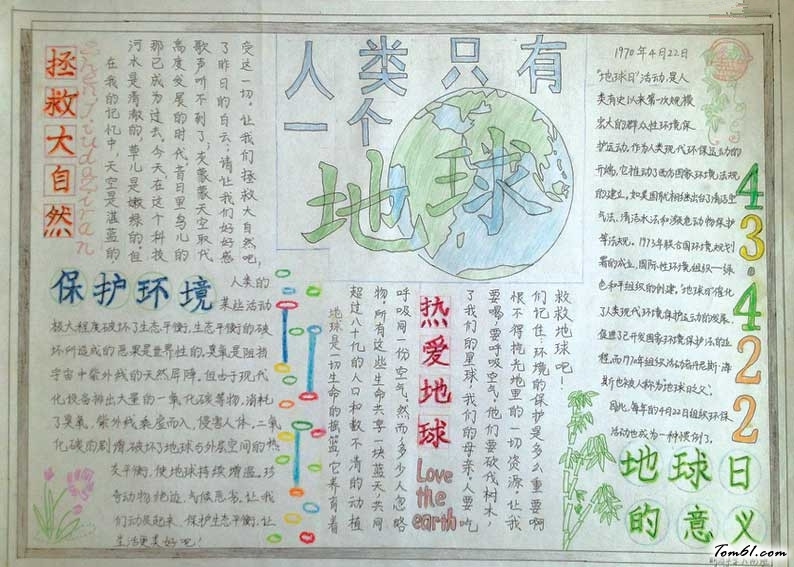 人类只有
一个
地球
拯救大自然
在我的记忆中,天空是湛蓝的
河水是清澈的,草儿是嫩绿的。但
那已成为过去。今天在这个科技
高度发展的时代,昔日里鸟儿的
歌声听不到了,灰蒙蒙天空取代
了昨日的白云;请让我们好好感
受这一切。让我们拯救大自然吧,
保护环境
人类的
某些活动
极大程度破坏了生态平衡,生态平衡的破
坏所造成的恶果是世界性的,臭氧是阻挡
宇宙中紫外线的天然屏障。但由于现代
化设备排出大量的一氧化碳等物,消耗
了臭氧,紫外线乘虚而入,侵害人体,二氧
化碳的剧增,破坏了地球与外层空间的热
交平衡,使地球持续增温。珍
奇动物绝迹,气候恶劣,让我
们动员起来,保护生态平衡,让
生活更美好吧!
热爱地球
Love
the
earth
地球是一切生命的摇篮,它养育着
超过八十亿的人口和数不清的动植
物,所有这些生命共享一块蓝天,共同
呼吸同一份空气。然而,多少人忽略
了我们的星球,我们的母亲。人要吃
要喝,要呼吸空气,他们要砍伐树木,
恨不得挖光地里的一切资源。让我
们记住:环境的保护是多么重要啊
救救地球吧!
1970年4月22日
"地球日"活动,是人
类有史以来第一次规模
宏大的群众性环境保
护运动,作为人类现代环保运动的
开端,它推动了西方国家环境法规
的建立。如美国就相继出台了清洁空
气法、清洁水法和濒危动物保护
等法规。1973年联合国环境规划
署的成立,国际性环境组织—绿
色和平组织的创建。"地球日"催化
了人类现代环境保护运动的发展,
促进了已开发国家环境保护法的进
程,而1970年组织活动者丹尼斯·海
斯也被人称为地球日之父。
因此,每年的4月22日组织环保
活动也成为一种惯例了。
43.422
地球日
的意义
Tom61.com